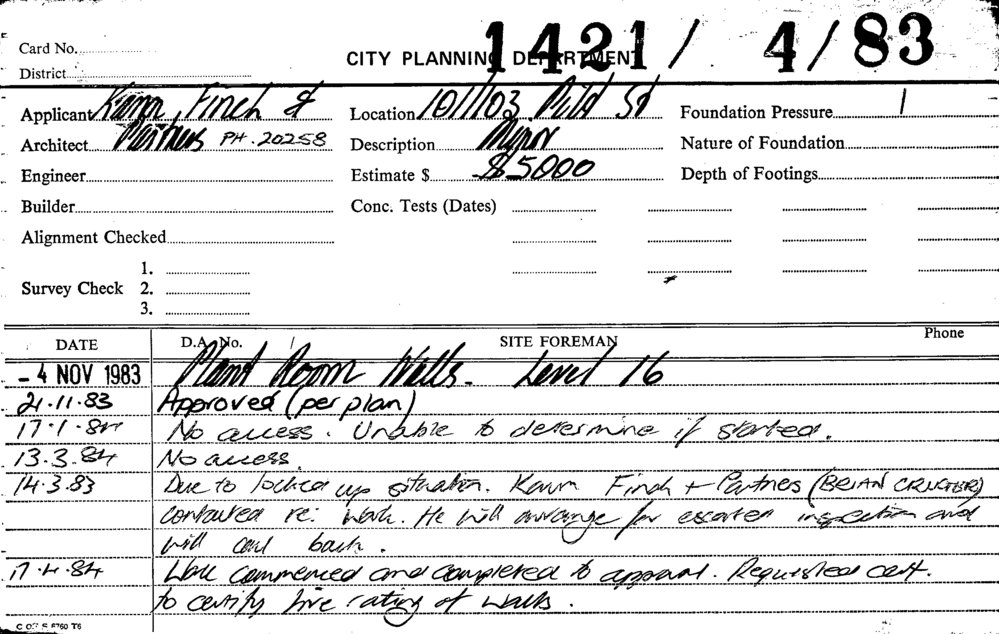 1421/ 4/83
Card No.
CITY PLANNING DEPARTMENT
District
Applicant Kann, Finch & Location 101/103 Pitt St Foundation Pressure
Architect Partners PH. 20258 Description Minor Nature of Foundation
Engineer Estimate $ $5000 Depth of Footings
Builder Conc. Tests (Dates)
Alignment Checked
1.
Survey Check 2.
3.
DATE D.A. No. SITE FOREMAN Phone
- 4 NOV 1983 Plant Room Walls. Level 16
21.11.83 Approved (per plan)
17.1.84 No access. Unable to determine if started.
13.3.84 No access.
14.3.83 Due to locked up situation. Kann Finch + Partners (BRIAN
contacted re: work. He will arrange for escorted inspection and
will call back.
17.4.84 Work commenced and completed to approval. Requested cert.
to certify fire rating of walls.